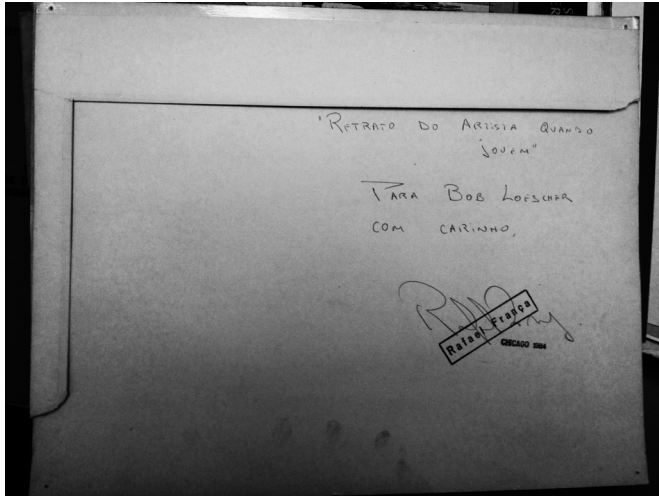 "RETRATO DO ARTISTA QUANDO
JOVEM"
PARA BOB LOESCHER
COM CARINHO,
Rafael França
CHICAGO 1984